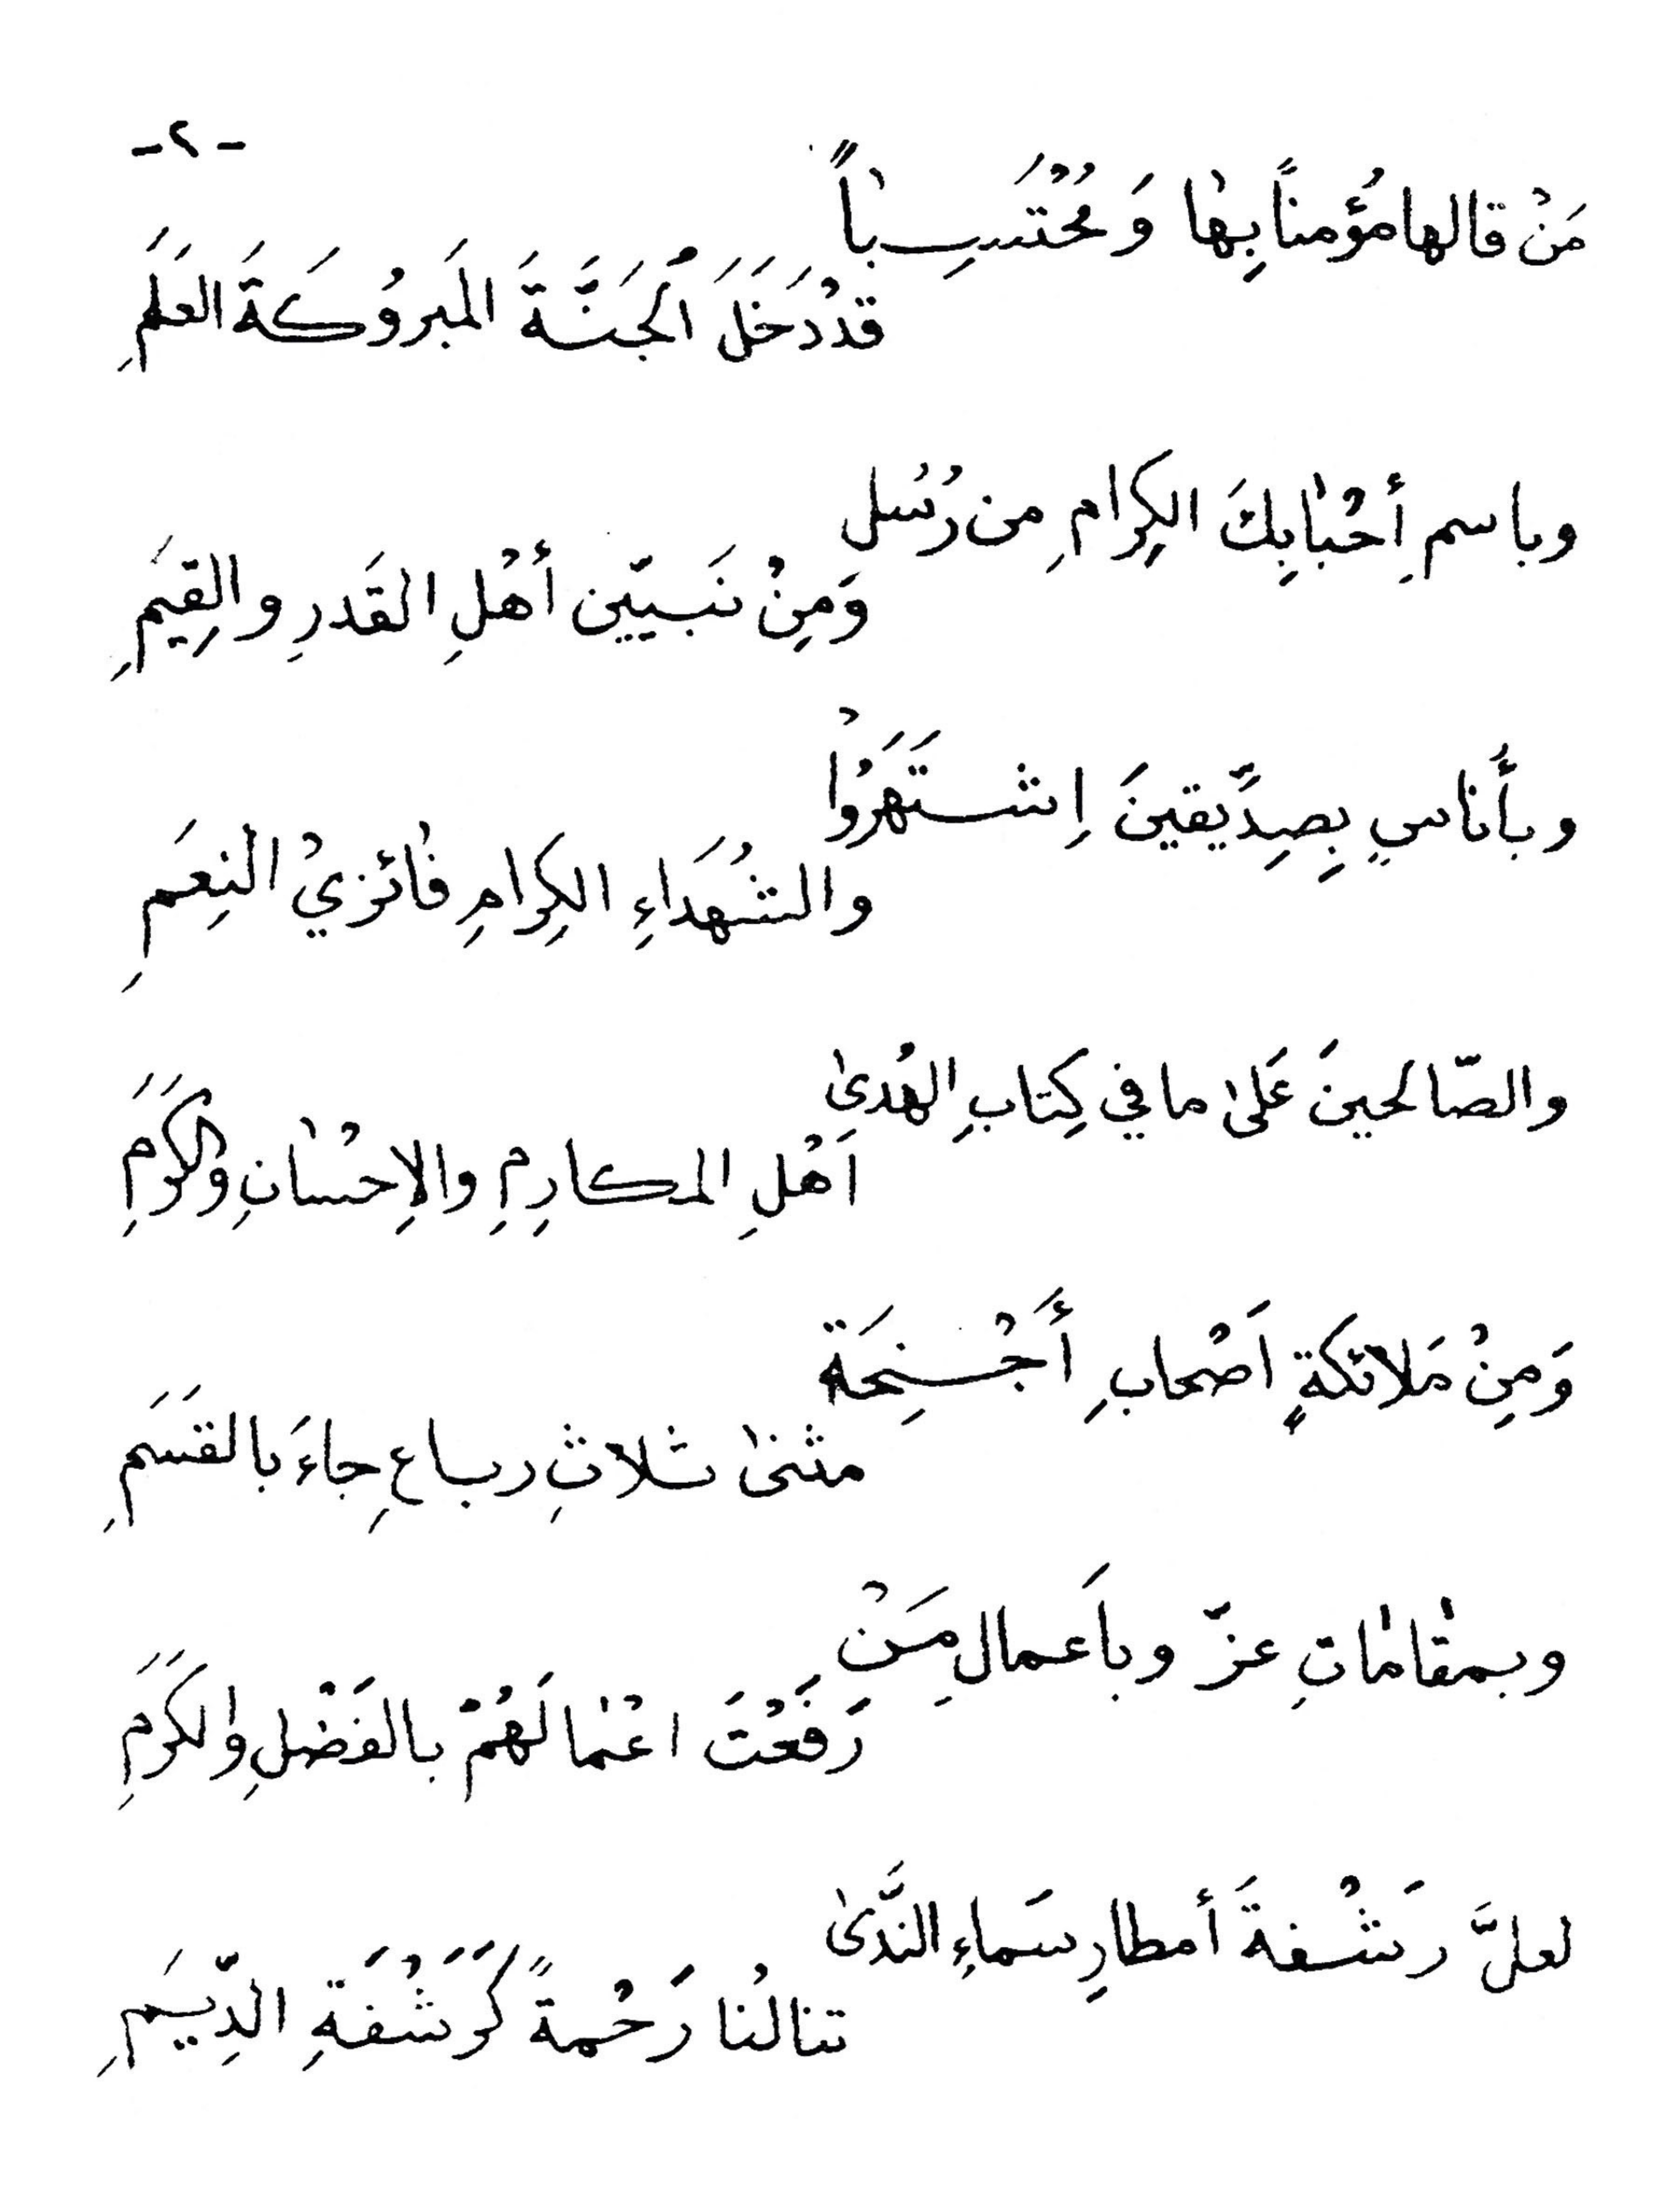 -٢-
مَنْ قالها مُؤمناً بِهٰا وَ مُحْتَسِباً
قدْ دَخَلَ الْجَنَّةَ المَبروُكَةَ العَلَمِ
وباسمِ أحْبٰابِكَ الكِرامِ من رُسُل
وَمِنْ نَبيّين أهْلِ القَدرِ والقِيَمِ
وبأُناسٍ بِصِدِّيقينَ اِشتَهَرُوْا
والشُهَداءِ الكِرامِ فٰائزيْ النِعَمِ
والصّالحينَ عَلىٰ ما في كِتابِ الهُدىٰ
اَهْلِ المكارِمِ والاِحْسٰانِ والكَرَمِ
وَمِنْ مَلائكةٍ اَصْحابِ أَجْنِحَة
مثنىٰ ثلاثِ رباعِ جاءَ بالقَسَمِ
وبمقٰامٰاتِ عزّ وباَعمالِ مَنْ
رَفَعْتَ اعْمٰالَهُمْ بالفَضْلِ والكَرَمِ
لعلَّ رَشْفةَ أمطارِ سَماءِ النَّدىٰ
تنالُنا رَحْمةً كَرَشْفَةِ الدِّيَمِ